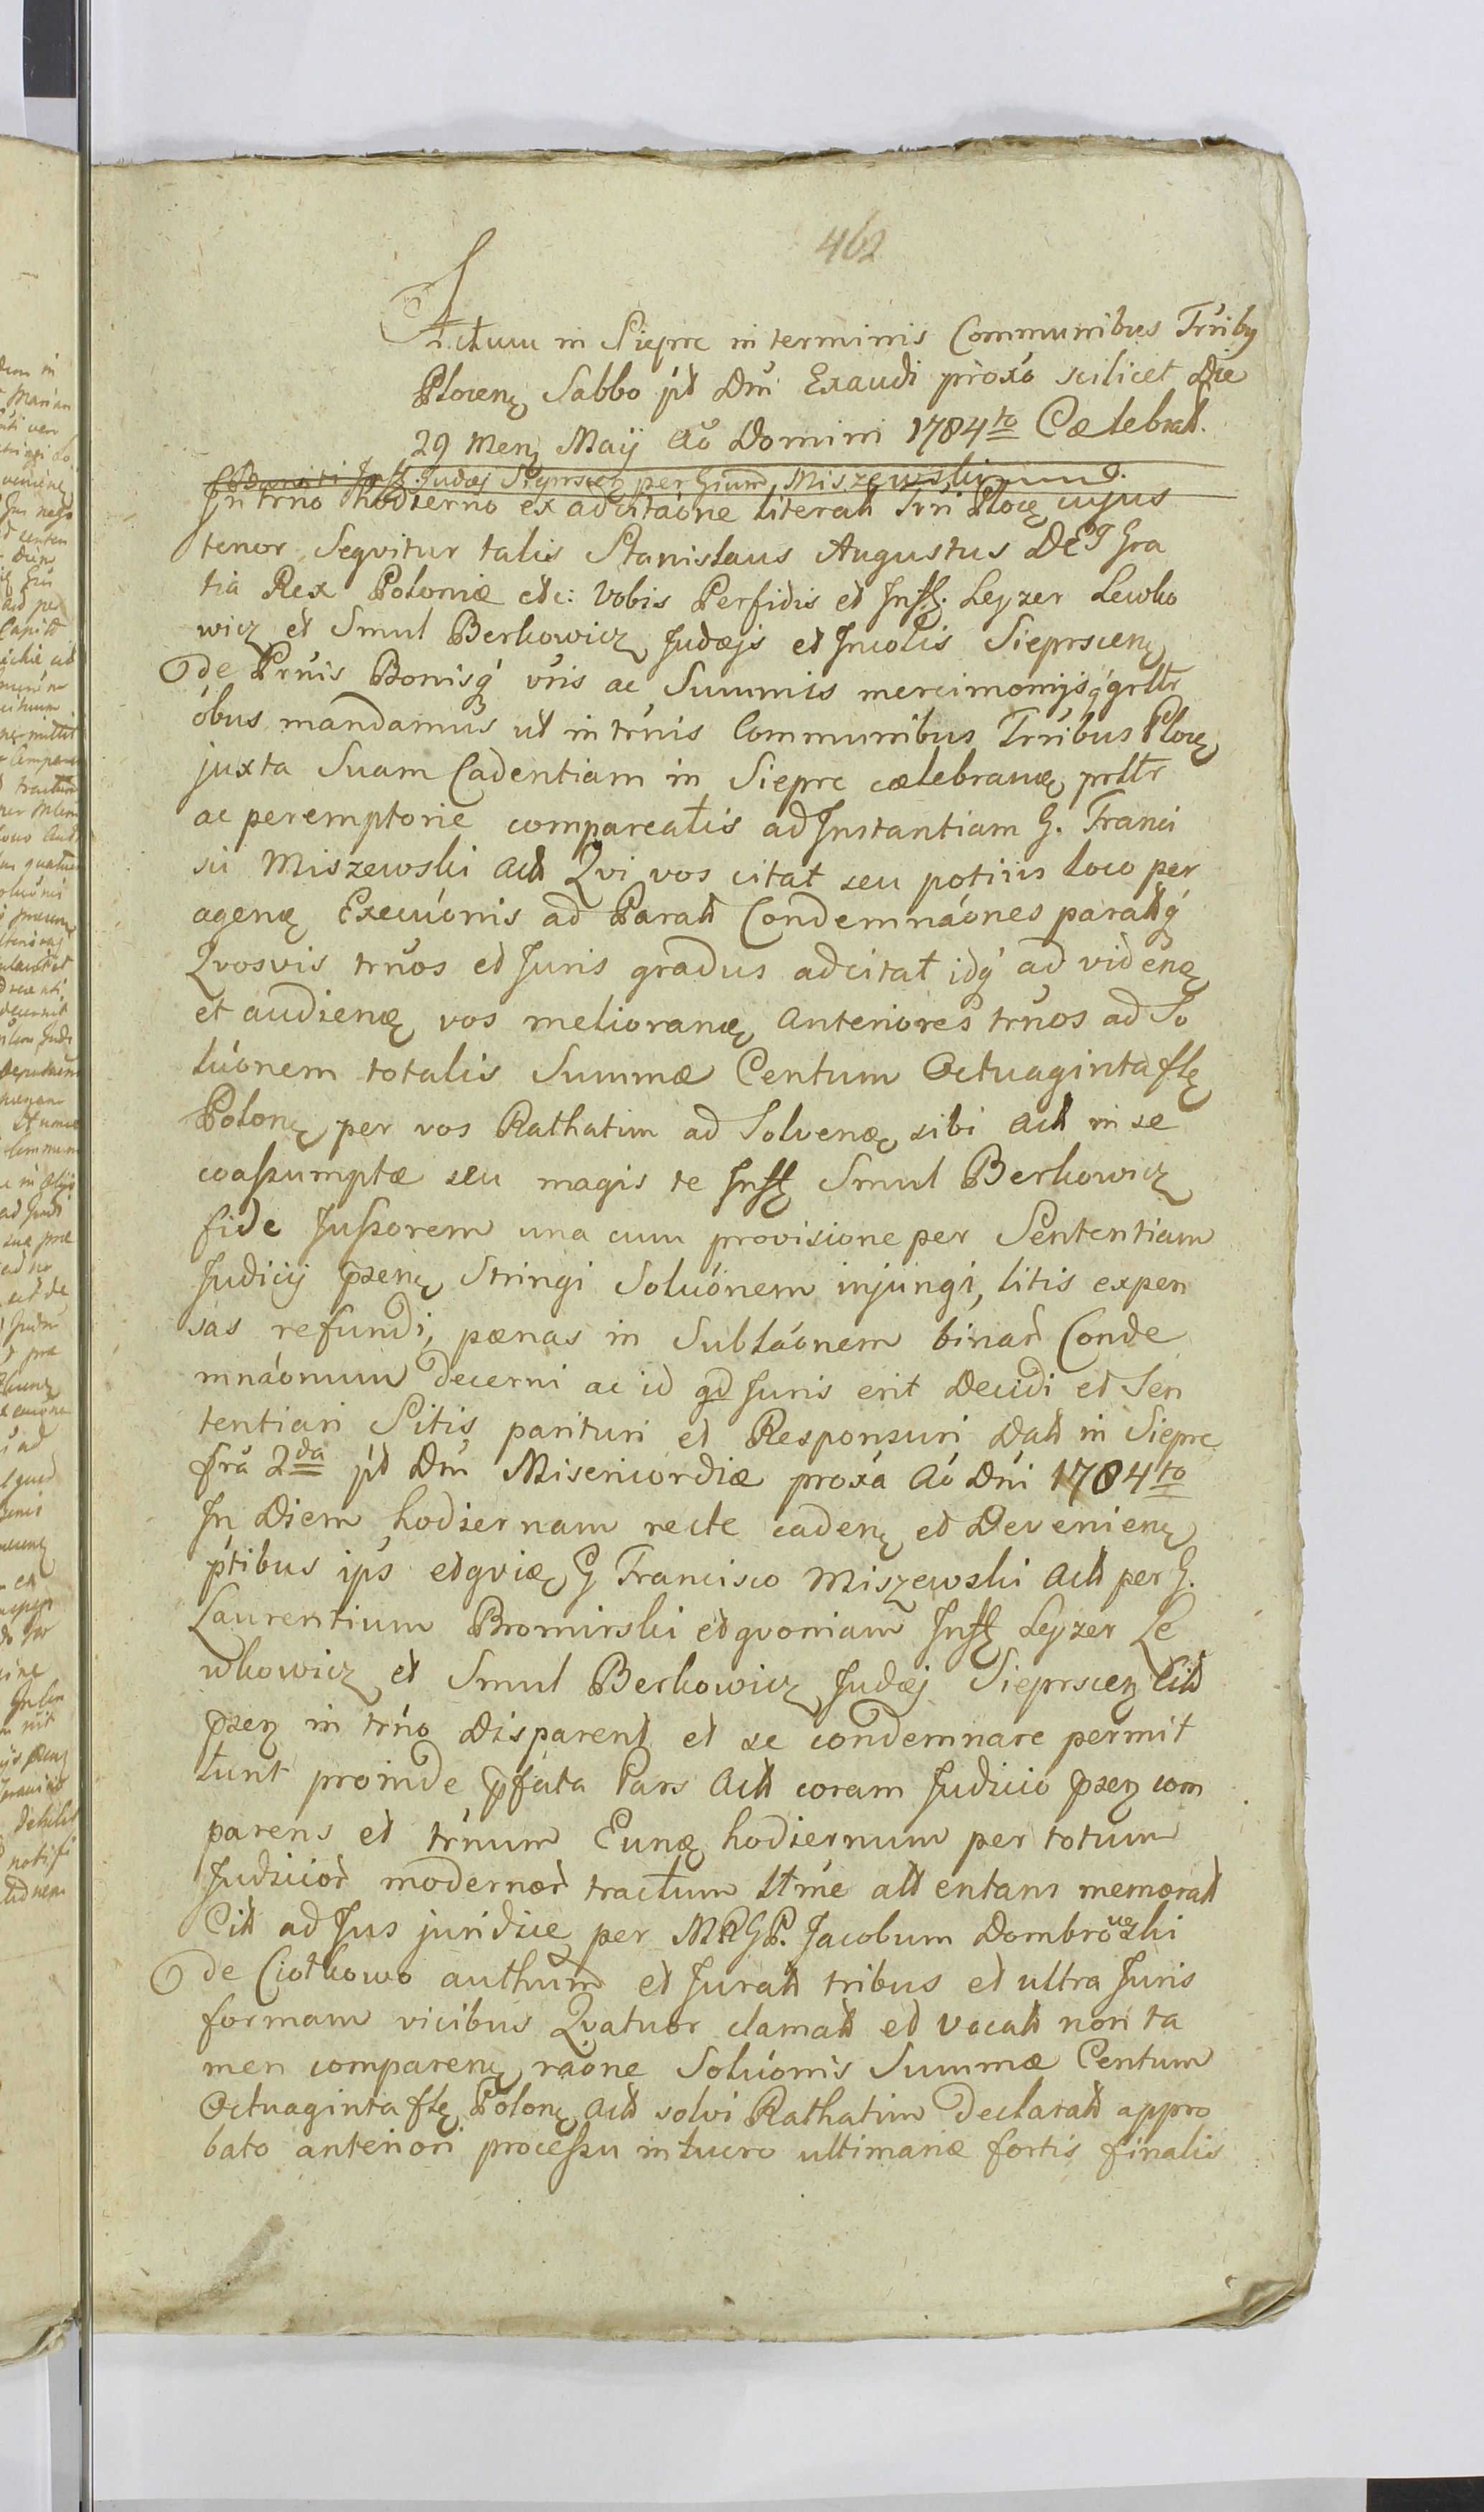 462
Actum in Sieprc in terminis Communibus Trńibȝ
Plocenȩ Sabbo pśt Dńi Exaudi próxo scilicet Die
29 Menȩ Maij Aó Domini 1784to Cælebrat.
Infs. Judæj Sieprscenȩ per Gium Miszewski
In trńo hodierno ex adcitáone literat Trńi Plocȩ cujus
tenor Seqvitur talis Stanislaus Augustus DEI Gra
tia Rex Poloniæ etc: Vobis Perfidis et Infs. Leyzer Lewko
wicz et Smul Berkowicz Judæjs et Incolis Sieprscenȩ
de Prńis Bonisq́ vr̃is ac Summis mercimonijsq́ gr̃ltr
óbus mandamus ut in trńis Communibus Trńibus Plocȩ
juxta Suam Cadentiam in Sieprc cælebranȩ prltr
ac peremptorie compareatis ad Instantiam G. Franci
sci Miszewski Act Qvi vos citat seu potiús loco per
agenȩ Execúonis ad Parat Condemnáones paratq́
Qvosvis trńos et Juris gradus adcitat idq́ ad vidénȩ
et audienȩ vos melioranȩ Anteriores trńos ad So
lúonem totalis Summæ Centum Octuaginta flȩ
Polonȩ per vos Rathatim ad Solvenȩ sibi Act in se
coaſsumptæ seu magis te Infs Smul Berkowicz
fide Juſsorem una cum provisione per Sententiam
Judicij p̃senȩ Stringi Solúonem injungi, litis expen
sas refundi, pænas in Subláonem binar Conde
mnáonum decerni ac id qd Juris erit Decidi et Sen
tentiari Sitis parituri et Responsuri Dat in Sieprc
frá 2da pśt Dńi Misericordiæ próxa Aó Dńi 1784to
In Diem hodiernam recte cadenȩ et Devenienȩ
pt́ibus ipś et gviæ G Francisco Miszewski Act per G.
Laurentium Bromirski et gvoniam Infs Leyzer Le
wkowicz et Smul Berkowicz Judæj Sieprscenȩ Cit
p̃senȩ in trńo Disparent et se condemnare permit
tunt proinde p̃fata Pars Act coram Judicio p̃senȩ com
parens et trńum Eunȩ hodiernum per totum
Judicior modernor tractum lt́me attentans memorat
Cit ad Jus juridice per MRGP. Jacobum Dombrowski
de Ciotkowo authum et Jurat tribus et ultra Juris
formam vicibus Qvatuor clamat et vocat non ta
men comparenȩ ráone Solúonis Summæ Centum
Octuaginta flȩ Polonȩ Act solvi Rathatim declarat appro
bato anteriori proceſsu in lucro ultimariæ fortis finalis